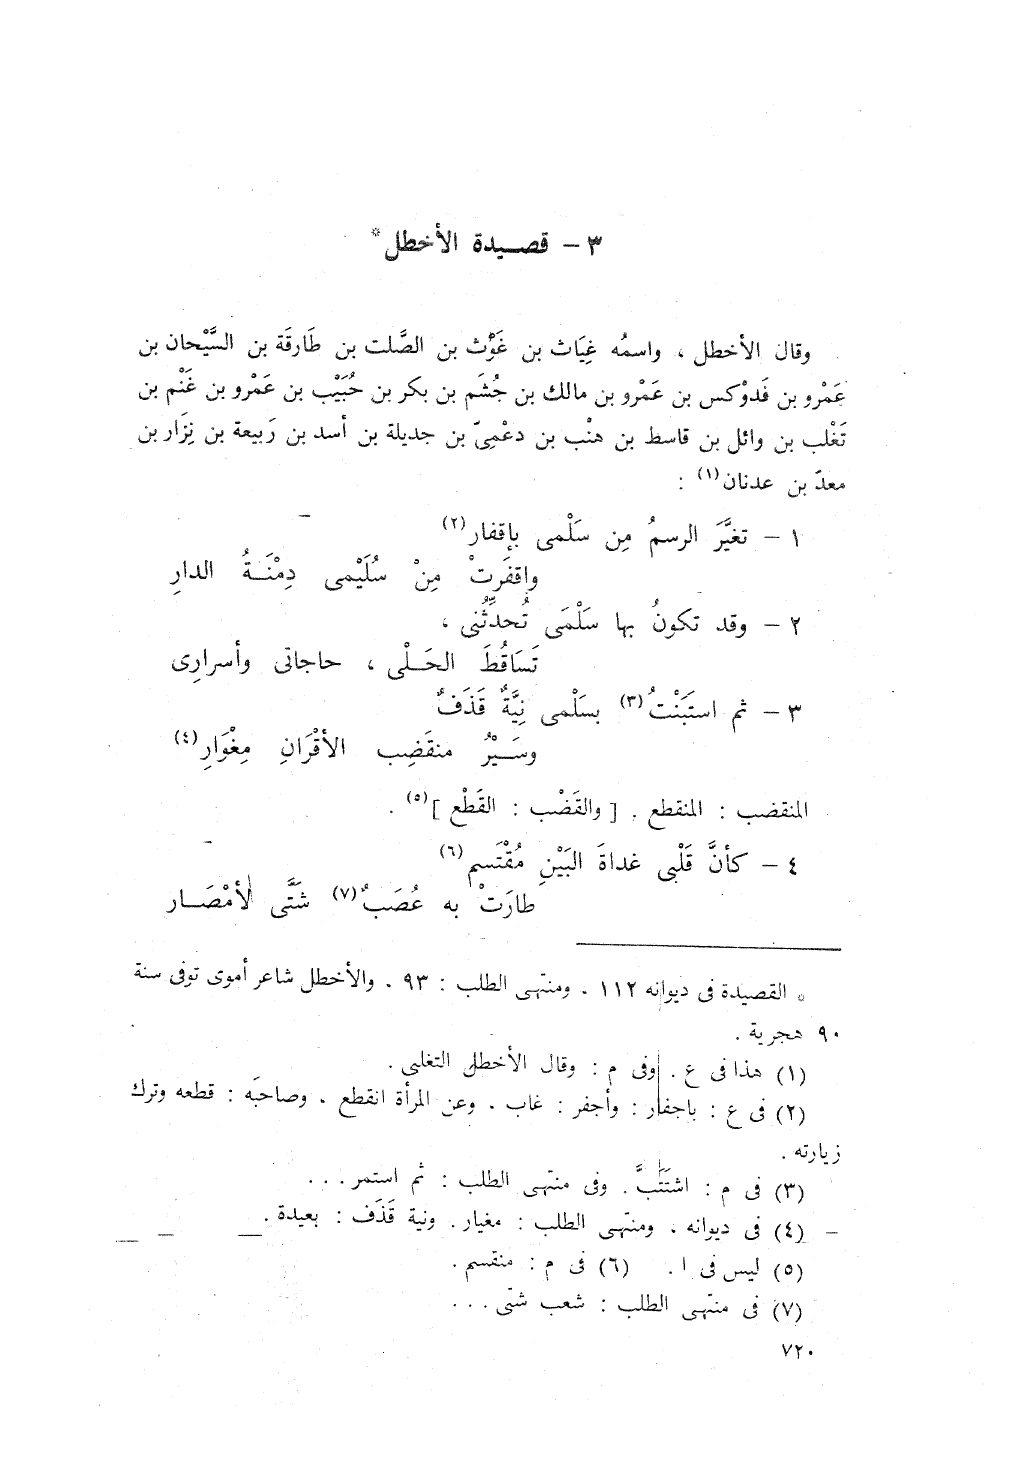 ٣ – قصيدة الأخطل*
وقال الأخطل ، واسمُه غِيَاث بن غَوْث بن الصَّلت بن طَارقَة بن السَّيْحان بن
عَمْرو بن فَدوْكس بن عَمْرو بن مالك بن جُشَم بن بكر بن حُبَيْب بن عَمْرو بن غَنْم بن
تَغْلب بن وائل بن قاسط بن هنْب بن دعْمِىّ بن جديلة بن أسد بن رَبيعة بن نِزَار بن
معدّ بن عدنان(١) :
١ – تغيَّرَ الرسمُ مِن سَلْمى بإقفار(٢)
واقفَرتْ مِنْ سُلَيْمى دِمْنَةُ الدارِ
٢ – وقد تكونُ بها سَلْمَى تُحدِّثُنى ،
تَسَاقُطَ الحَلْى ، حاجاتى وأسرارِى
٣ – ثم استَبَنْتُ(٣) بسَلْمى نِيَّةٌ قَذَفٌ
وسَيْرُ منقَضِب الأقْرَانِ مِغْوَارِ(٤)
المنقضب : المنقطع . [ والقَضْب : القَطْع ](٥) .
٤ – كأنَّ قَلْبى غداةَ البَيْنِ مُقْتَسم(٦)
طارَتْ به عُصَبٌ(٧) شَتَّى لأمْصَار
* القصيدة فى ديوانه ١١٢ . ومنتهى الطلب : ٩٣ . والأخطل شاعر أموى توفى سنة
٩٠ هجرية .
(١) هذا فى ع . وفى م : وقال الأخطل التغلبى .
(٢) فى ع : باجفار : وأجفر : غاب . وعن المرأة انقطع . وصاحبَه : قطعه وترك
زيارته .
(٣) فى م : اشتَتَبَّ . وفى منتهى الطلب : ثم استمر . . .
(٤) فى ديوانه ، ومنتهى الطلب : مغيار . ونية قَذَف : بعيدة .
(٥) ليس فى ا . (٦) فى م : منقسم .
(٧) فى منتهى الطلب : شعب شتّى . . .
٧٢٠